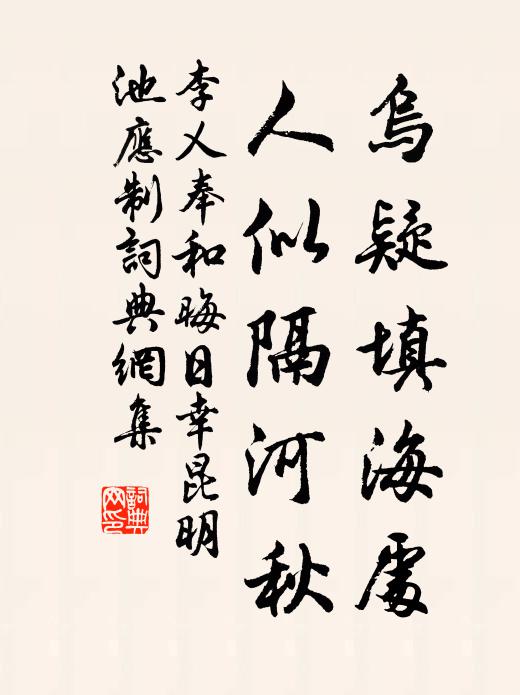 烏疑填海處
人似隔河秋
李乂奉和晦日幸昆明
池應制詞典網集
詞典網印